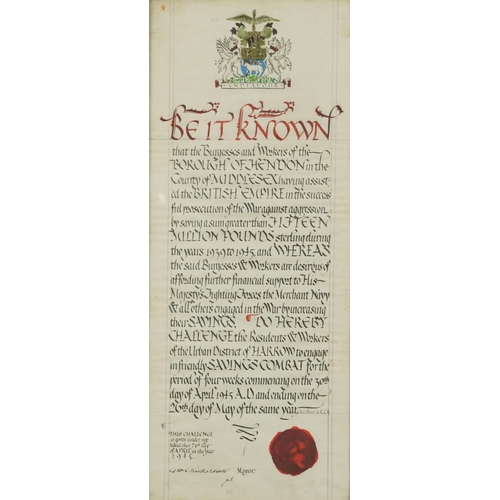 ENDEAVOUR
BE IT KNOWN
that the Burgesses and Workers of the
BOROUGH OF HENDON in the
County of MIDDLESEX having assist
ed the BRITISH EMPIRE in the success
ful prosecution of the War against aggression
by saving a sum greater than FIFTEEN
MILLION POUNDS sterling during
the years 1939 to 1945, and WHEREAS
the said Burgesses & Workers are desirous of
affording further financial support to His
Majesty's Fighting Forces, the Merchant Navy
& all others engaged in the War by increasing
their SAVINGS, DO HEREBY
CHALLENGE the Residents & Workers
of the Urban District of HARROW to engage
in friendly SAVINGS COMBAT for the
period of four weeks commencing on the 30th
day of April 1945 A.D. and ending on the
26th day of May of the same year.
THIS CHALLENGE
is given under my
hand this
of APRIL in the year
1945
Mayor